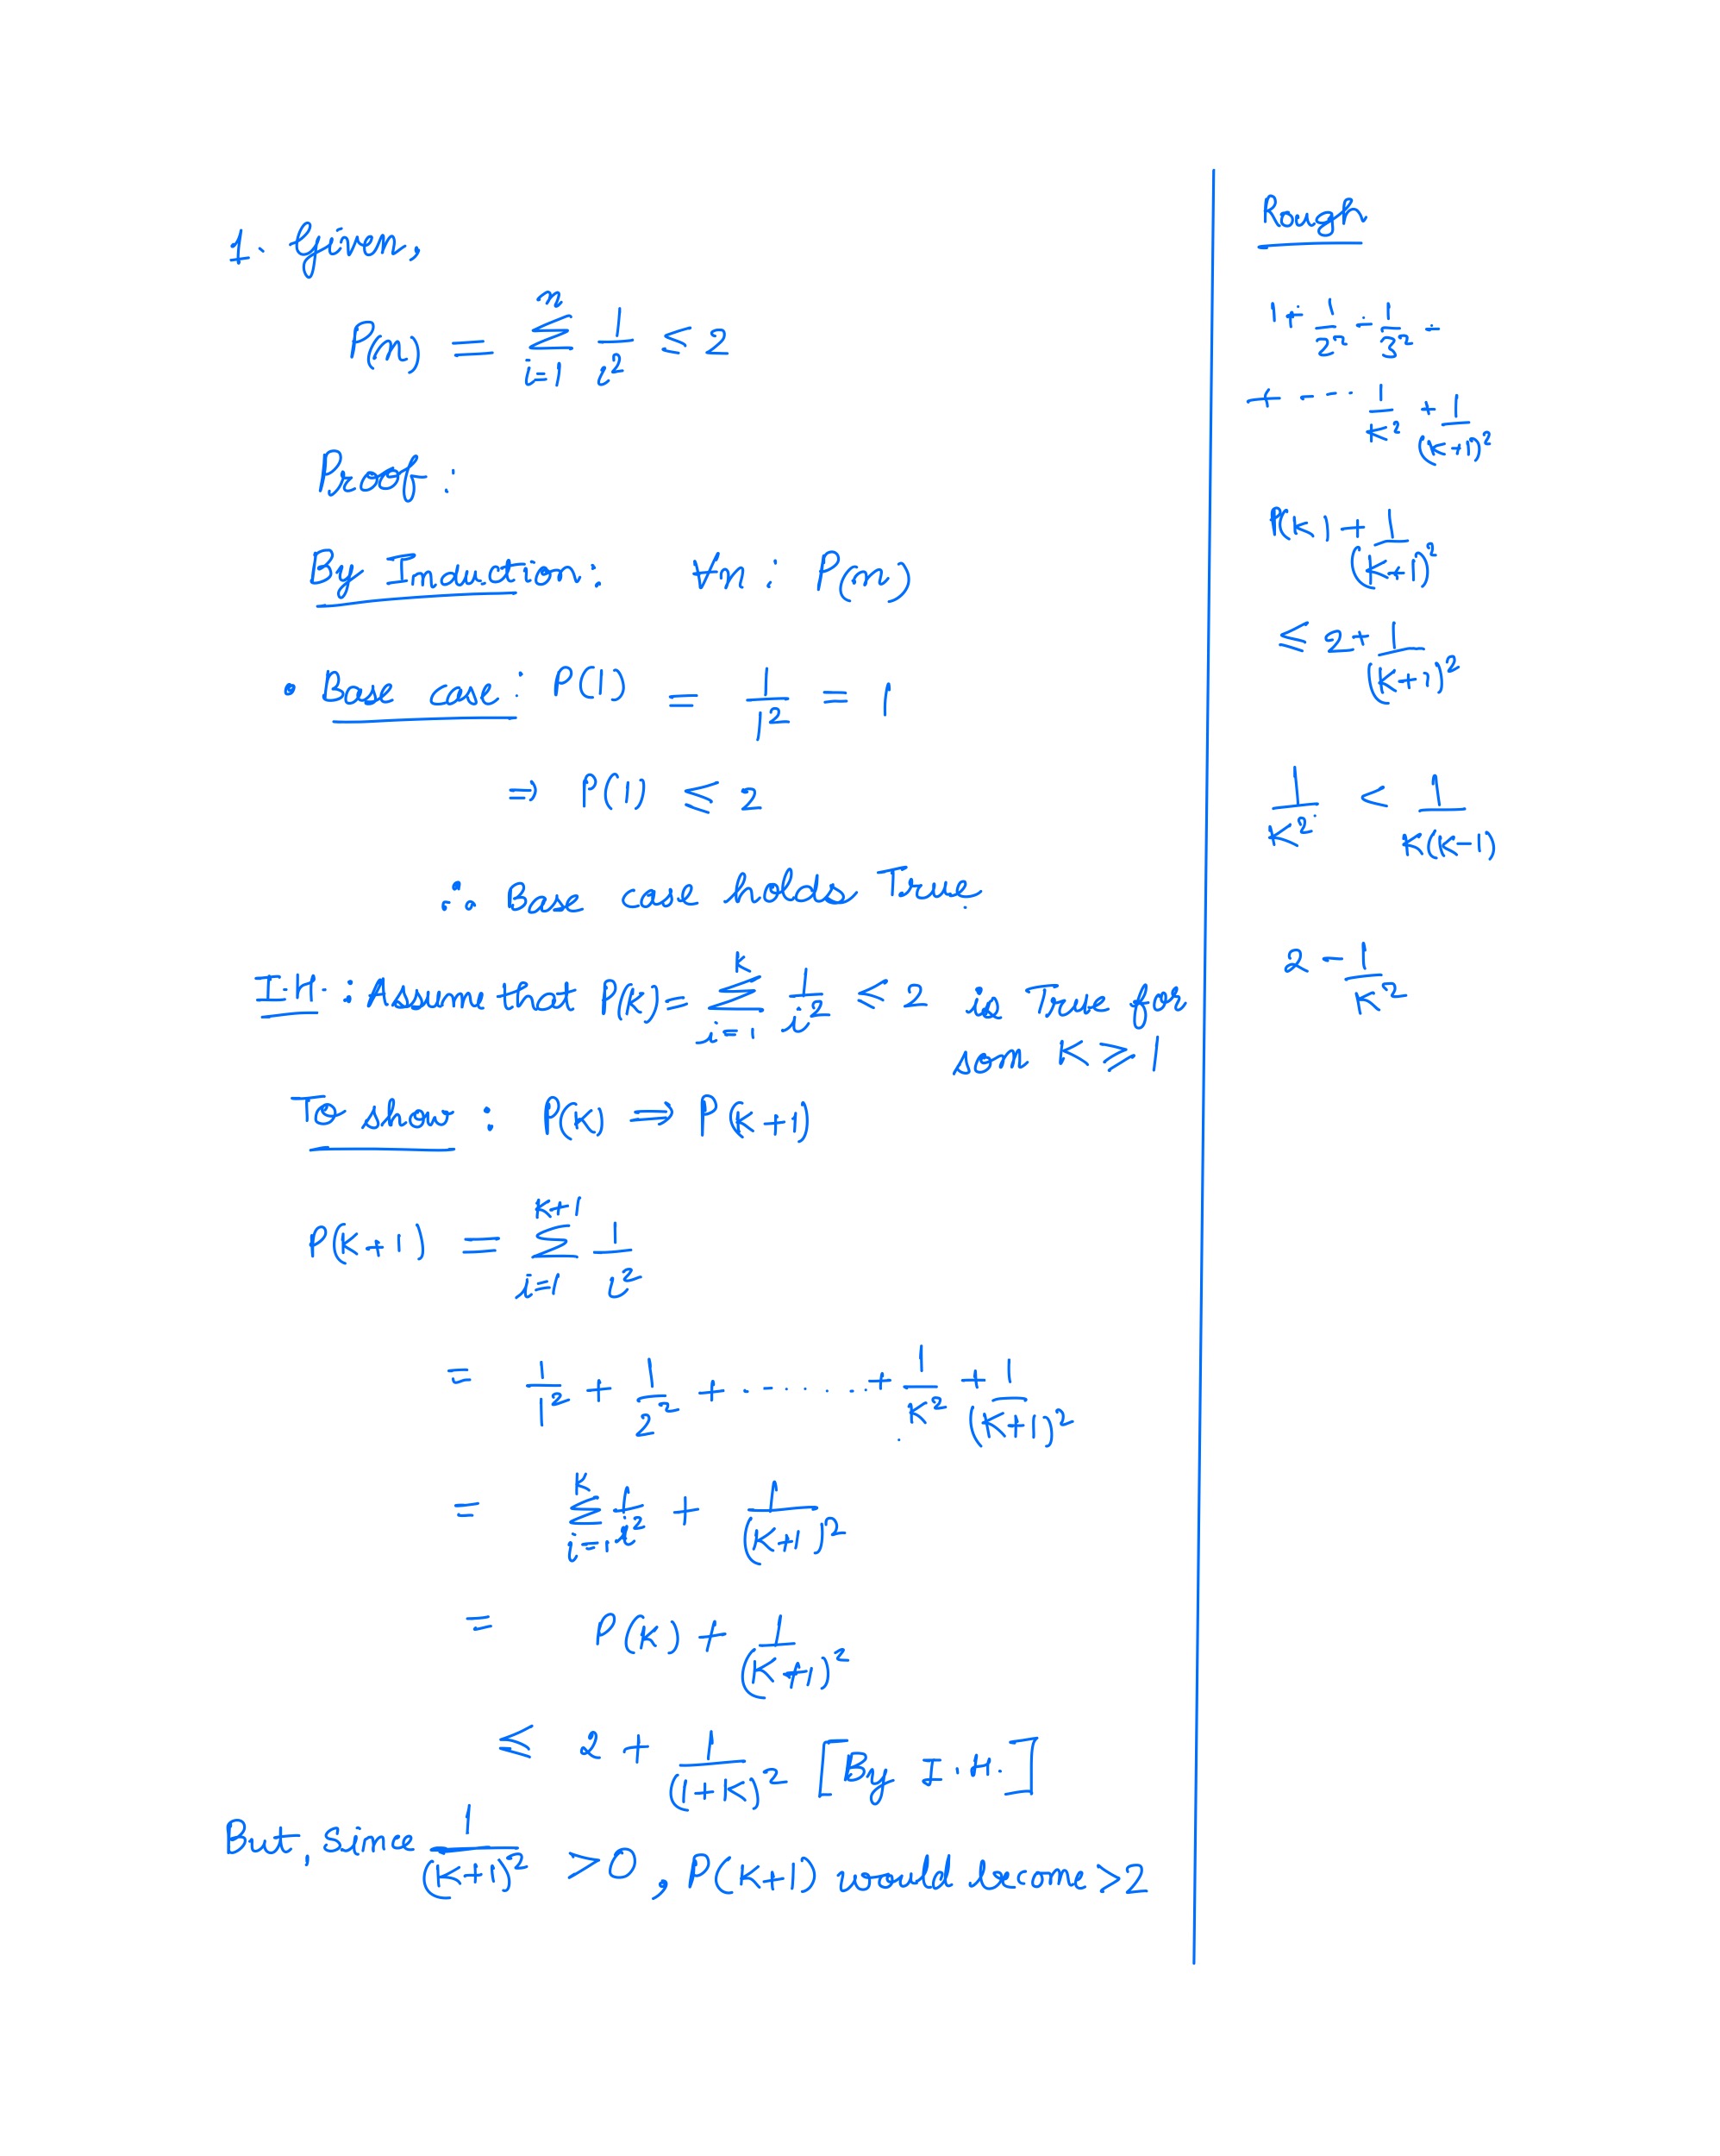 1. Given,
P(n) = ∑_{i=1}^{n} 1/i² ≤ 2
Proof :
By Induction: ∀n : P(n)
• Base case: P(1) = 1/1² = 1
⇒ P(1) ≤ 2
∴ Base case holds True.
I.H. : Assume that P(k) = ∑_{i=1}^{k} 1/i² ≤ 2 is True for
som K ≥ 1
To show : P(K) ⇒ P(K+1)
P(K+1) = ∑_{i=1}^{K+1} 1/i²
= 1/1² + 1/2² + ........ + 1/K² + 1/(K+1)²
= ∑_{i=1}^{K} 1/i² + 1/(K+1)²
= P(K) + 1/(K+1)²
≤ 2 + 1/(1+K)² [By I.H.]
But, since 1/(K+1)² > 0, P(K+1) would become > 2
Rough
1 + 1/2² + 1/3² +
+ ---- 1/K² + 1/(K+1)²
P(K) + 1/(K+1)²
≤ 2 + 1/(K+1)²
1/K² < 1/K(K-1)
2 - 1/K²